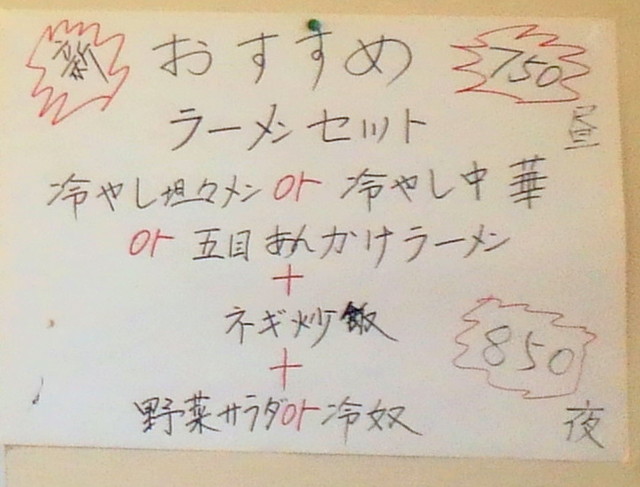 新 おすすめ 750
昼
ラーメンセット
冷やし坦々メン or 冷やし中華
or 五目あんかけラーメン
+
ネギ炒飯
+
850
野菜サラダor冷奴
夜